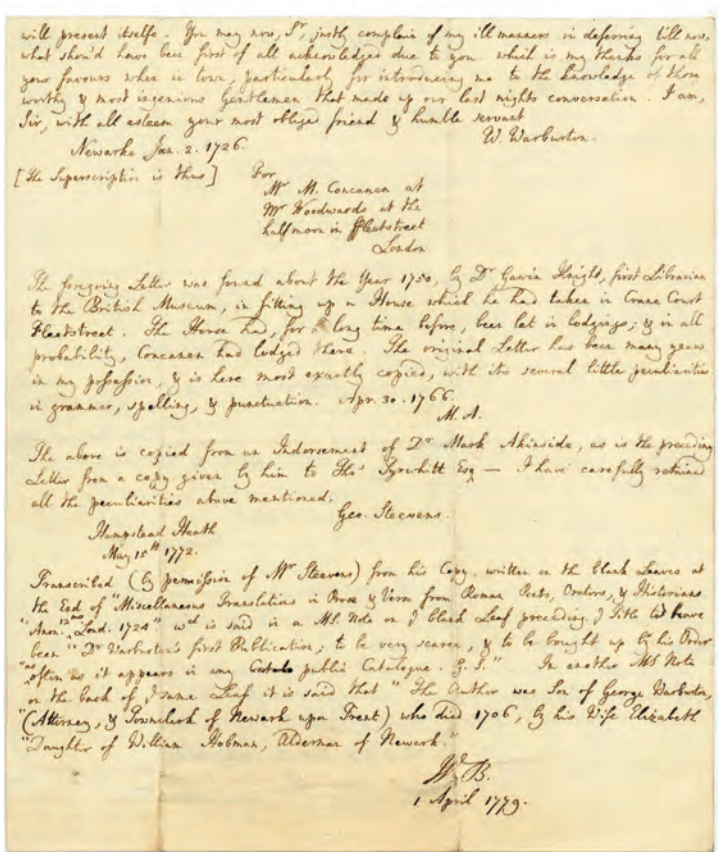 will present itselfe. You may now, Sr, justly complain of my ill manners in deferring till now,
what shou'd have been first of all acknowledged due to you. which is my thanks for all
your favours when in town, particularly for introducing me to the knowledge of those
worthy & most ingenious Gentlemen that made up our last nights conversation. I am,
Sir, with all esteem your most obliged friend & humble servant
W. Warburton.
Newarke Jan. 2. 1726.
[The Superscription is thus] For
Mr M. Concanen at
Mr Woodwards at the
halfmoon in Fleetstreet
London
The foregoing Letter was found about the Year 1750, by Dr Gawin Knight, first Librarian
to the British Museum, in fitting up a House which he had taken in Crane Court
Fleetstreet. The House had, for a long time before, been let in lodgings; & in all
probability, Concanen had lodged there. The original Letter has been many years
in my possession, & is here most exactly copied, with its several little peculiarities
in grammar, spelling, & punctuation. Apr. 30. 1766.
M. A.
The above is copied from an Indorsement of Dr Mark Akinside, as is the preceding
Letter from a copy given by him to Thos Tyrwhitt Esq — I have carefully retained
all the peculiarities above mentioned.
Geo. Steevens.
Hampstead Heath
May 15th 1772.
Transcribed (by permission of Mr Steevens) from his Copy written on the blank Leaves at
the End of "Miscellaneous Translations in Prose & Verse from Roman Poets, Orators, & Historians
"Anon. 12mo Lond. 1724" wch is said in a MS. Note on ye blank Leaf preceding ye Title to have
been "Dr Warburton's first Publication; to be very scarce, & to be bought up by his Order
"as often as it appears in any public Catalogue. G. S." In another MS Note
on the back of ye same Leaf it is said that "The Author was Son of George Warburton,
"(Attorney, & Townclerk of Newark upon Trent) who died 1706, by his Wife Elizabeth
"Daughter of William Hobman, Alderman of Newark."
Wm B.
1 April 1779.